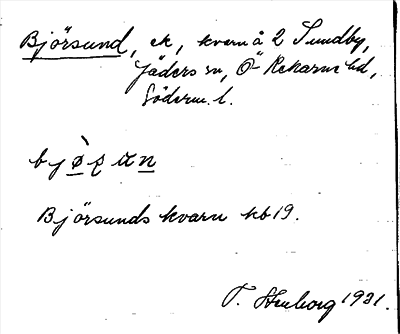 Björsund, ek, kvarn å 2 Sundby,
Jäders sn, Ö Rekarne hd,
Söderm. l.
Björsunds kvarn kb 19.
T. Stenborg 1931.